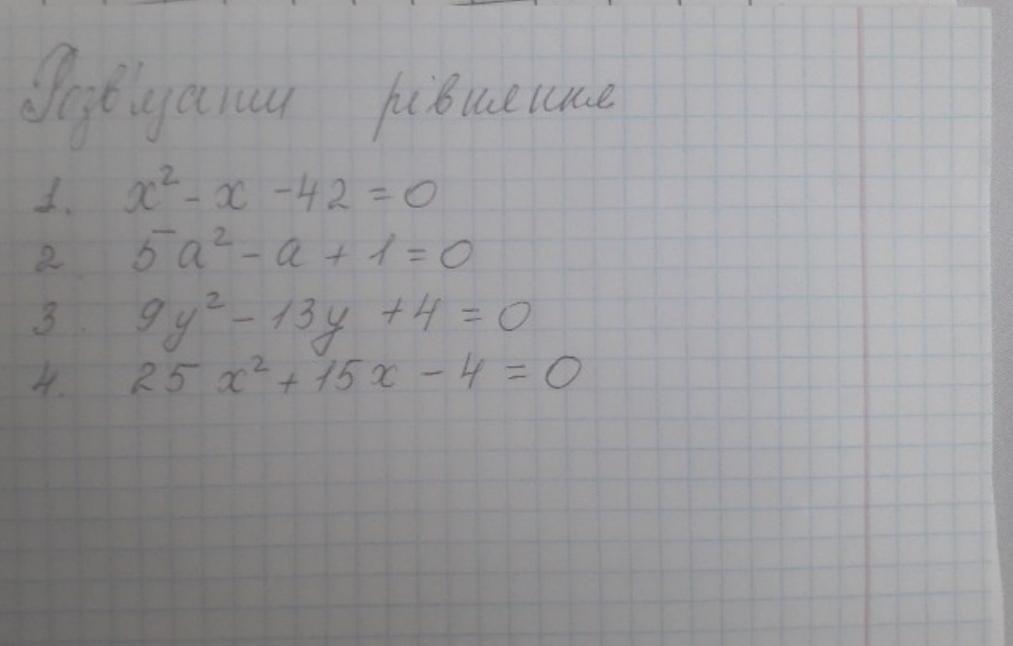 Розв'язати рівняння
1. x² - x - 42 = 0
2 5a² - a + 1 = 0
3. 9y² - 13y + 4 = 0
4. 25x² + 15x - 4 = 0